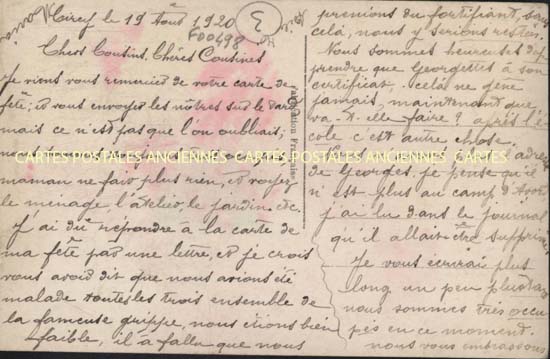 Cirey le 19 Août 1920
E
F00498
Chers Cousins, Chères Cousines
Je viens vous remercier de votre carte de
fête, et vous envoyer les nôtres sur le tard
mais ce n'est pas que l'on oubliait;
maman ne fait plus rien, et voyez
le ménage l'atelier le jardin etc.
J'ai dû répondre à la carte de
ma fête par une lettre, et je crois
vous avoir dit que nous avions été
malade toutes les trois ensemble de
la fameuse grippe, nous étions bien
faible, il a fallu que nous
prenions du fortifiant, sans
celà, nous y serions restées.
Nous sommes heureuses d'ap
prendre que Georgette à son
certificat, celà ne gêne
jamais, maintenant que
va-t-elle faire? après l'é
cole c'est autre chose.
de Georges, je pense qu'il
n'est plus au camp d'Avor
j'ai lu dans le journal
qu'il allait être supprimé
Je vous écrirai plus
long un peu plus tard
nous sommes très occu
pés en ce moment.
nous vous embrassons
Fabrication Française
CARTES POSTALES ANCIENNES CARTES POSTALES ANCIENNES CARTES